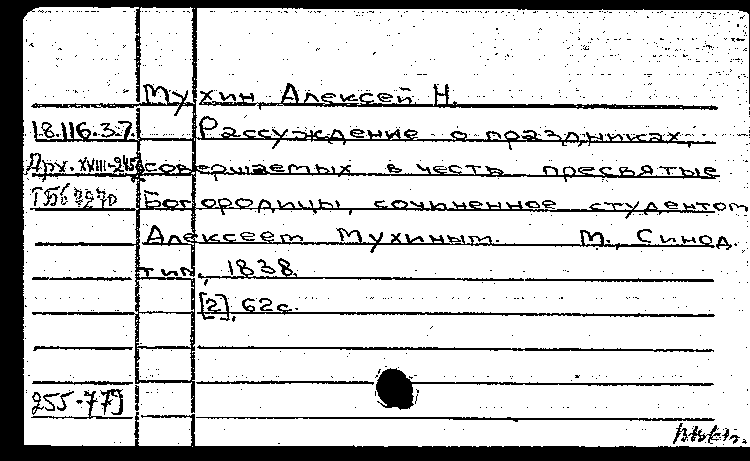 Мухин, Алексей Н.
18.116.3.7. Рассуждение о праздниках,
совершаемых в честь пресвятые
Богородицы, сочиненное студентом
Алексеем Мухиным. М., Синод.
тип., 1838.
[2], 62с.